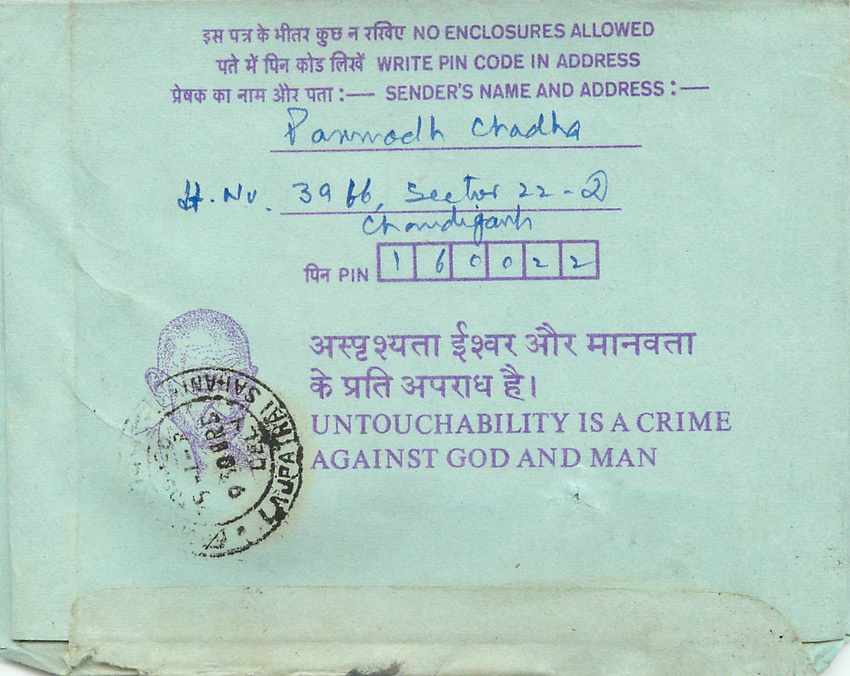 इस पत्र के भीतर कुछ न रखिए NO ENCLOSURES ALLOWED
पते में पिन कोड लिखें WRITE PIN CODE IN ADDRESS
प्रेषक का नाम और पता :— SENDER'S NAME AND ADDRESS :—
Chadha
H. No. 3966, Sector 22-D
Chandigarh
पिन PIN 160022
अस्पृश्यता ईश्वर और मानवता
के प्रति अपराध है।
UNTOUCHABILITY IS A CRIME
AGAINST GOD AND MAN
LAJPAT RAI